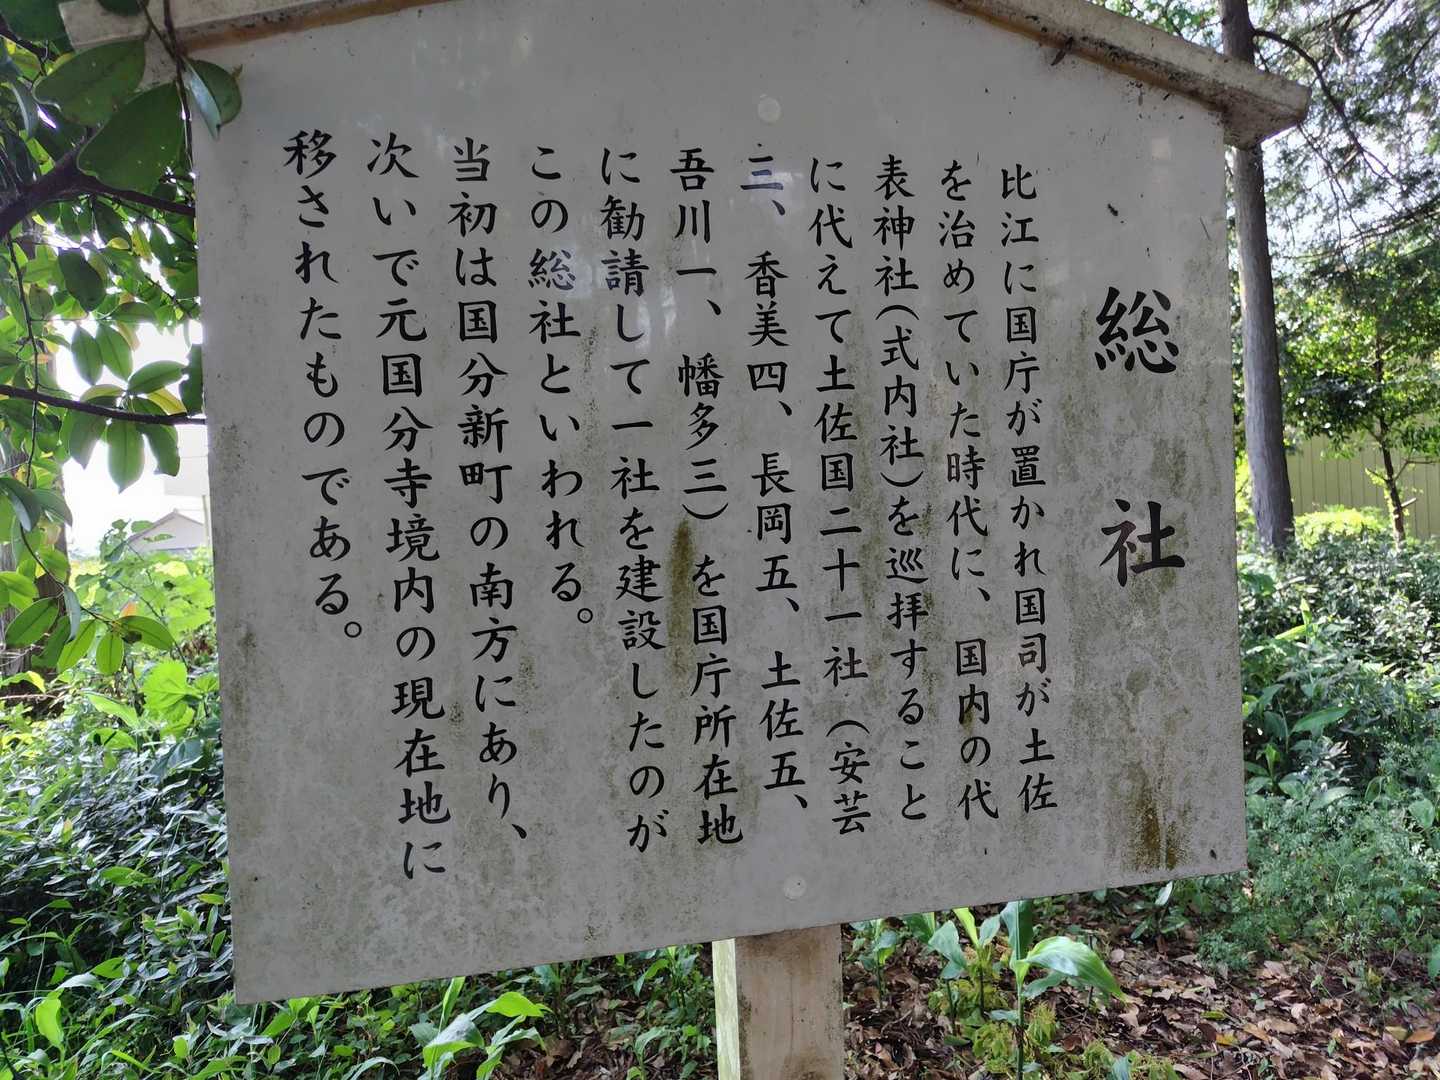 総社
比江に国庁が置かれ国司が土佐
を治めていた時代に、国内の代
表神社(式内社)を巡拝すること
に代えて土佐国二十一社(安芸
三、香美四、長岡五、土佐五、
吾川一、幡多三)を国庁所在地
に勧請して一社を建設したのが
この総社といわれる。
当初は国分新町の南方にあり、
次いで元国分寺境内の現在地に
移されたものである。